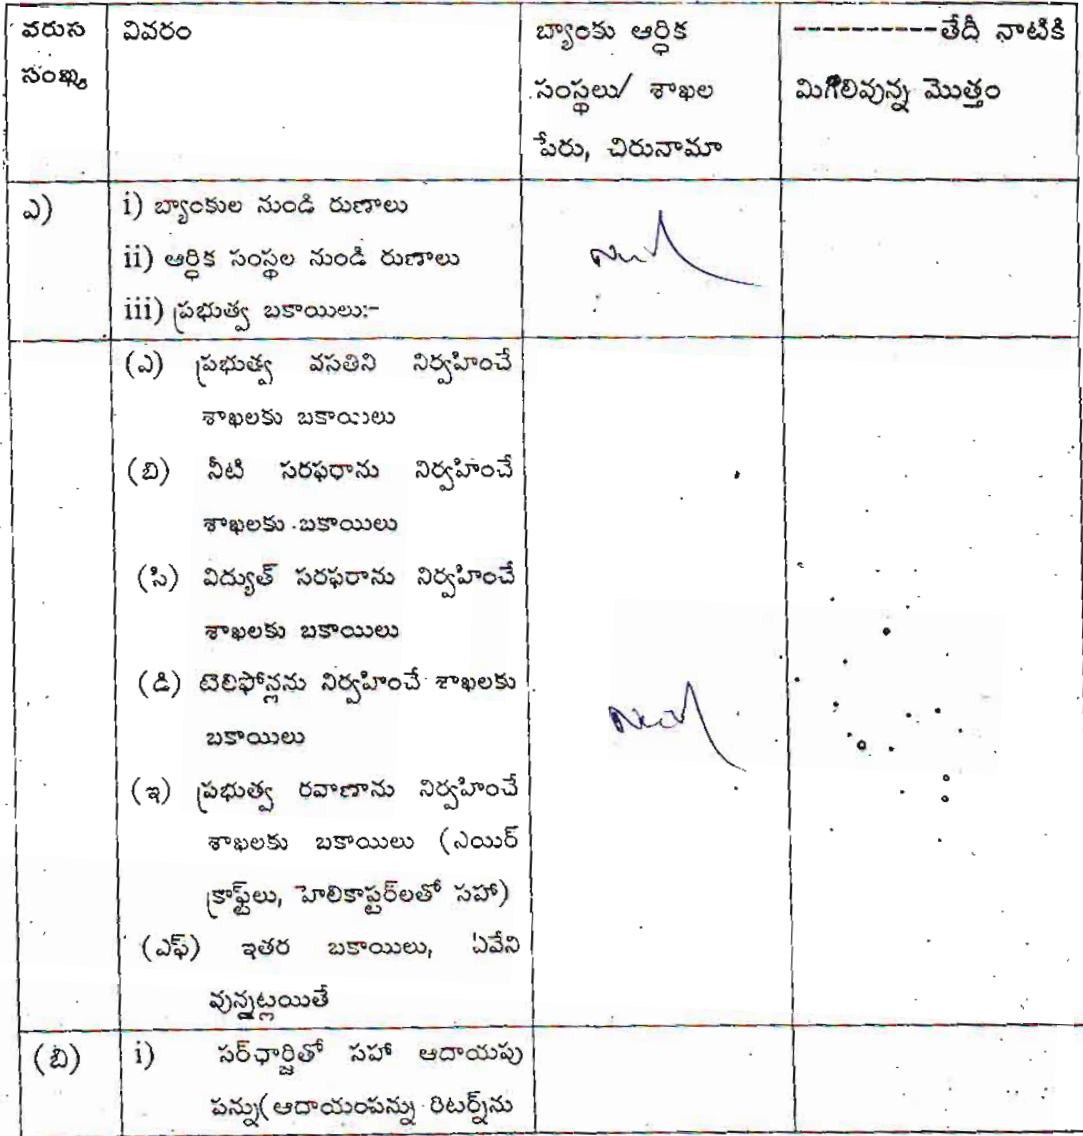 వరుస వివరం బ్యాంకు ఆర్ధిక ----------తేదీ నాటికి
సంఖ్య సంస్థలు/ శాఖల మిగిలివున్న మొత్తం
పేరు, చిరునామా
ఎ) i) బ్యాంకుల నుండి రుణాలు
ii) ఆర్ధిక సంస్థల నుండి రుణాలు Nil
iii) ప్రభుత్వ బకాయిలు:-
(ఎ) ప్రభుత్వ వసతిని నిర్వహించే
శాఖలకు బకాయిలు
(బి) నీటి సరఫరాను నిర్వహించే
శాఖలకు బకాయిలు
(సి) విద్యుత్ సరఫరాను నిర్వహించే
శాఖలకు బకాయిలు
(డి) టెలిఫోన్లను నిర్వహించే శాఖలకు
బకాయిలు Nil
(ఇ) ప్రభుత్వ రవాణాను నిర్వహించే
శాఖలకు బకాయిలు (ఎయిర్
క్రాఫ్ట్‌లు, హెలికాప్టర్‌లతో సహా)
(ఎఫ్) ఇతర బకాయిలు, ఏవేని
వున్నట్లయితే
(బి) i) సర్‌ఛార్జితో సహా ఆదాయపు
పన్ను(ఆదాయంపన్ను రిటర్న్‌ను